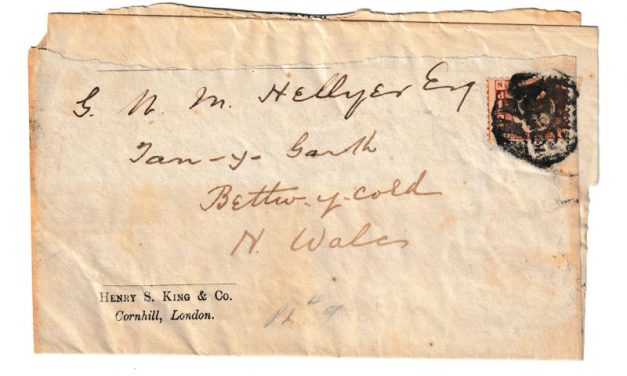 G. N. M. Hellyer Esq
Tan-y-Garth
Bettw-y-Coed
N. Wales
HENRY S. KING & CO.
Cornhill, London.